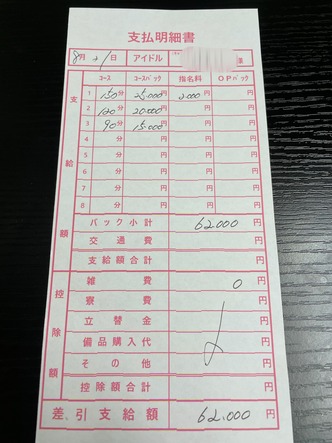 支払明細書
8月21日 アイドル 様
コース コースバック 指名料 OPバック
支給額
1 150分 25,000円 2,000円 円
2 120分 20,000円 円 円
3 90分 15,000円 円 円
4 分 円 円 円
5 分 円 円 円
6 分 円 円 円
7 分 円 円 円
8 分 円 円 円
バック小計 62,000円
交通費 円
支給額合計 円
控除額
雑費 0円
寮費 円
立替金 円
備品購入代 円
その他 円
控除額合計 円
差引支給額 62,000円